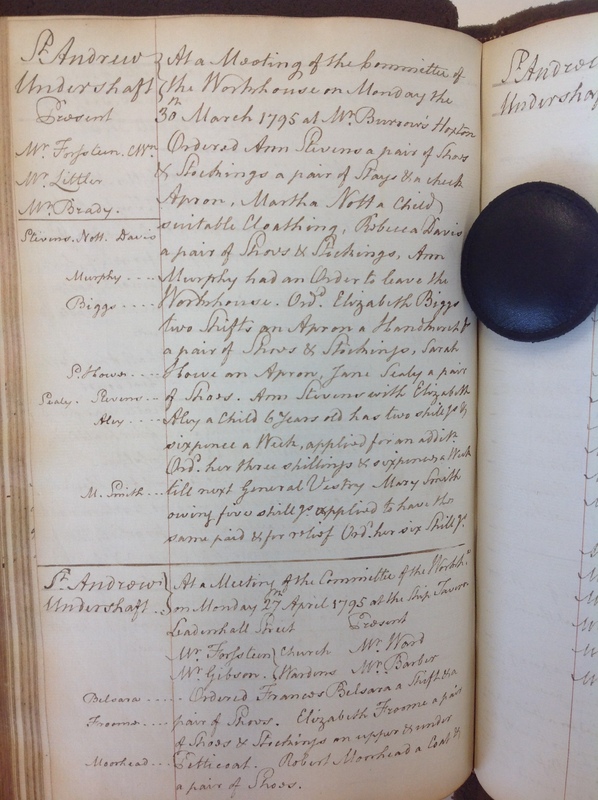 St. Andrew
Undershaft
Present
Mr. Forsstein. CWn.
Mr. Littler
Mr. Brady.
Stevens. Nott. Davis
Murphy
Biggs
S. Howe
Sealy. Stevens
Aley
M. Smith
At a Meeting of the Committee of
the Workhouse on Monday the
30th March 1795 at Mr. Burrow's Hoxton
Ordered Ann Stevens a pair of Shoes
& Stockings a pair of Stays & a check
Apron, Martha Nott a Child
suitable Cloathing, Rebecca Davis
a pair of Shoes & Stockings, Ann
Murphy had an Order to leave the
Workhouse. Ord. Elizabeth Biggs
two Shifts an Apron a Handkerch. &
a pair of Shoes & Stockings, Sarah
Howe an Apron, Jane Sealy a pair
of Shoes. Ann Stevens with Elizabeth
Aley a Child 6 Years old has two shillgs &
sixpence a Week, applied for an addit.
Ord. her three shillings & sixpence a Week
till next General Vestry Mary Smith
owing five shillgs applied to have the
same paid & for relief Ord. her six Shillgs.
St. Andrew
Undershaft
At a Meeting of the Committee of the Workh.
on Monday 27th April 1795 at the Ship Tavern
Leadenhall Street Present
Mr. Forsstein Church Mr. Ward
Mr. Gibson. Wardens Mr. Barber
Belsara Ordered Frances Belsara a Shift & a
Froome pair of Shoes. Elizabeth Froome a pair
of Shoes & Stockings an upper & under
Moorhead Petticoat. Robert Moorhead a Coat &
a pair of Shoes.
St. Andrew